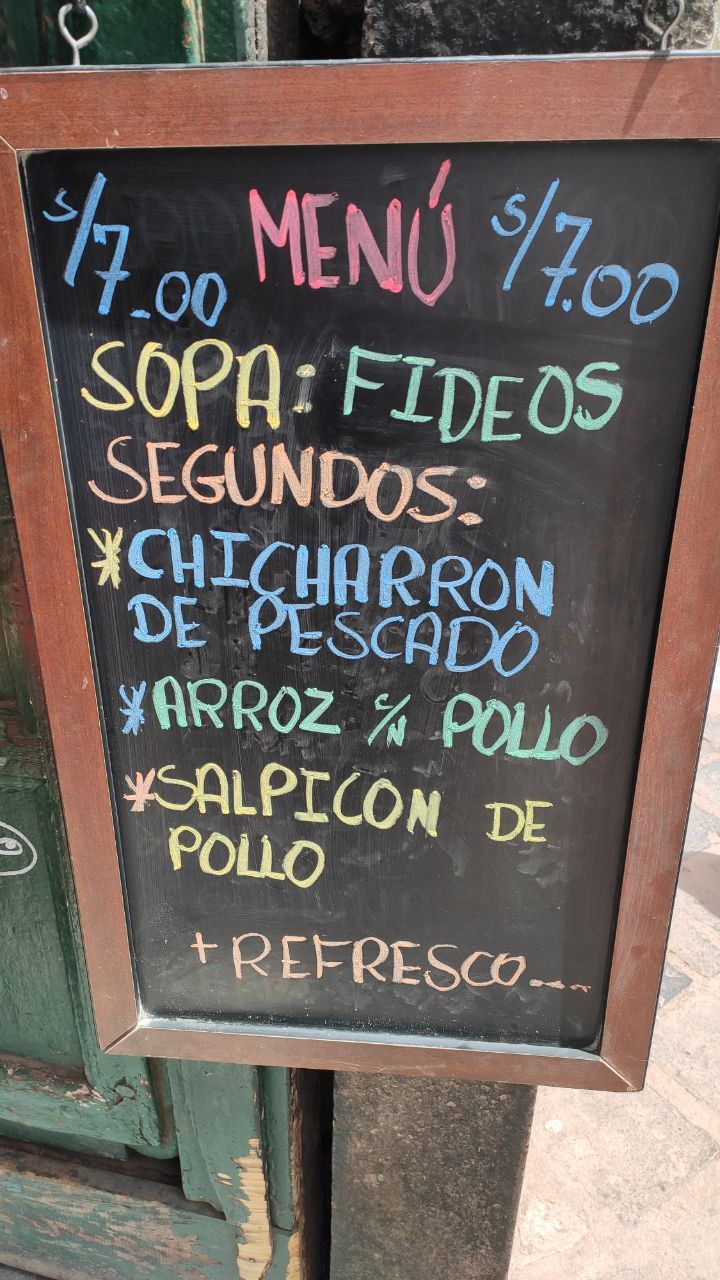 S/7.00 MENÚ S/7.00
SOPA: FIDEOS
SEGUNDOS:
*CHICHARRON
DE PESCADO
*ARROZ C/N POLLO
*SALPICON DE
POLLO
+REFRESCO....